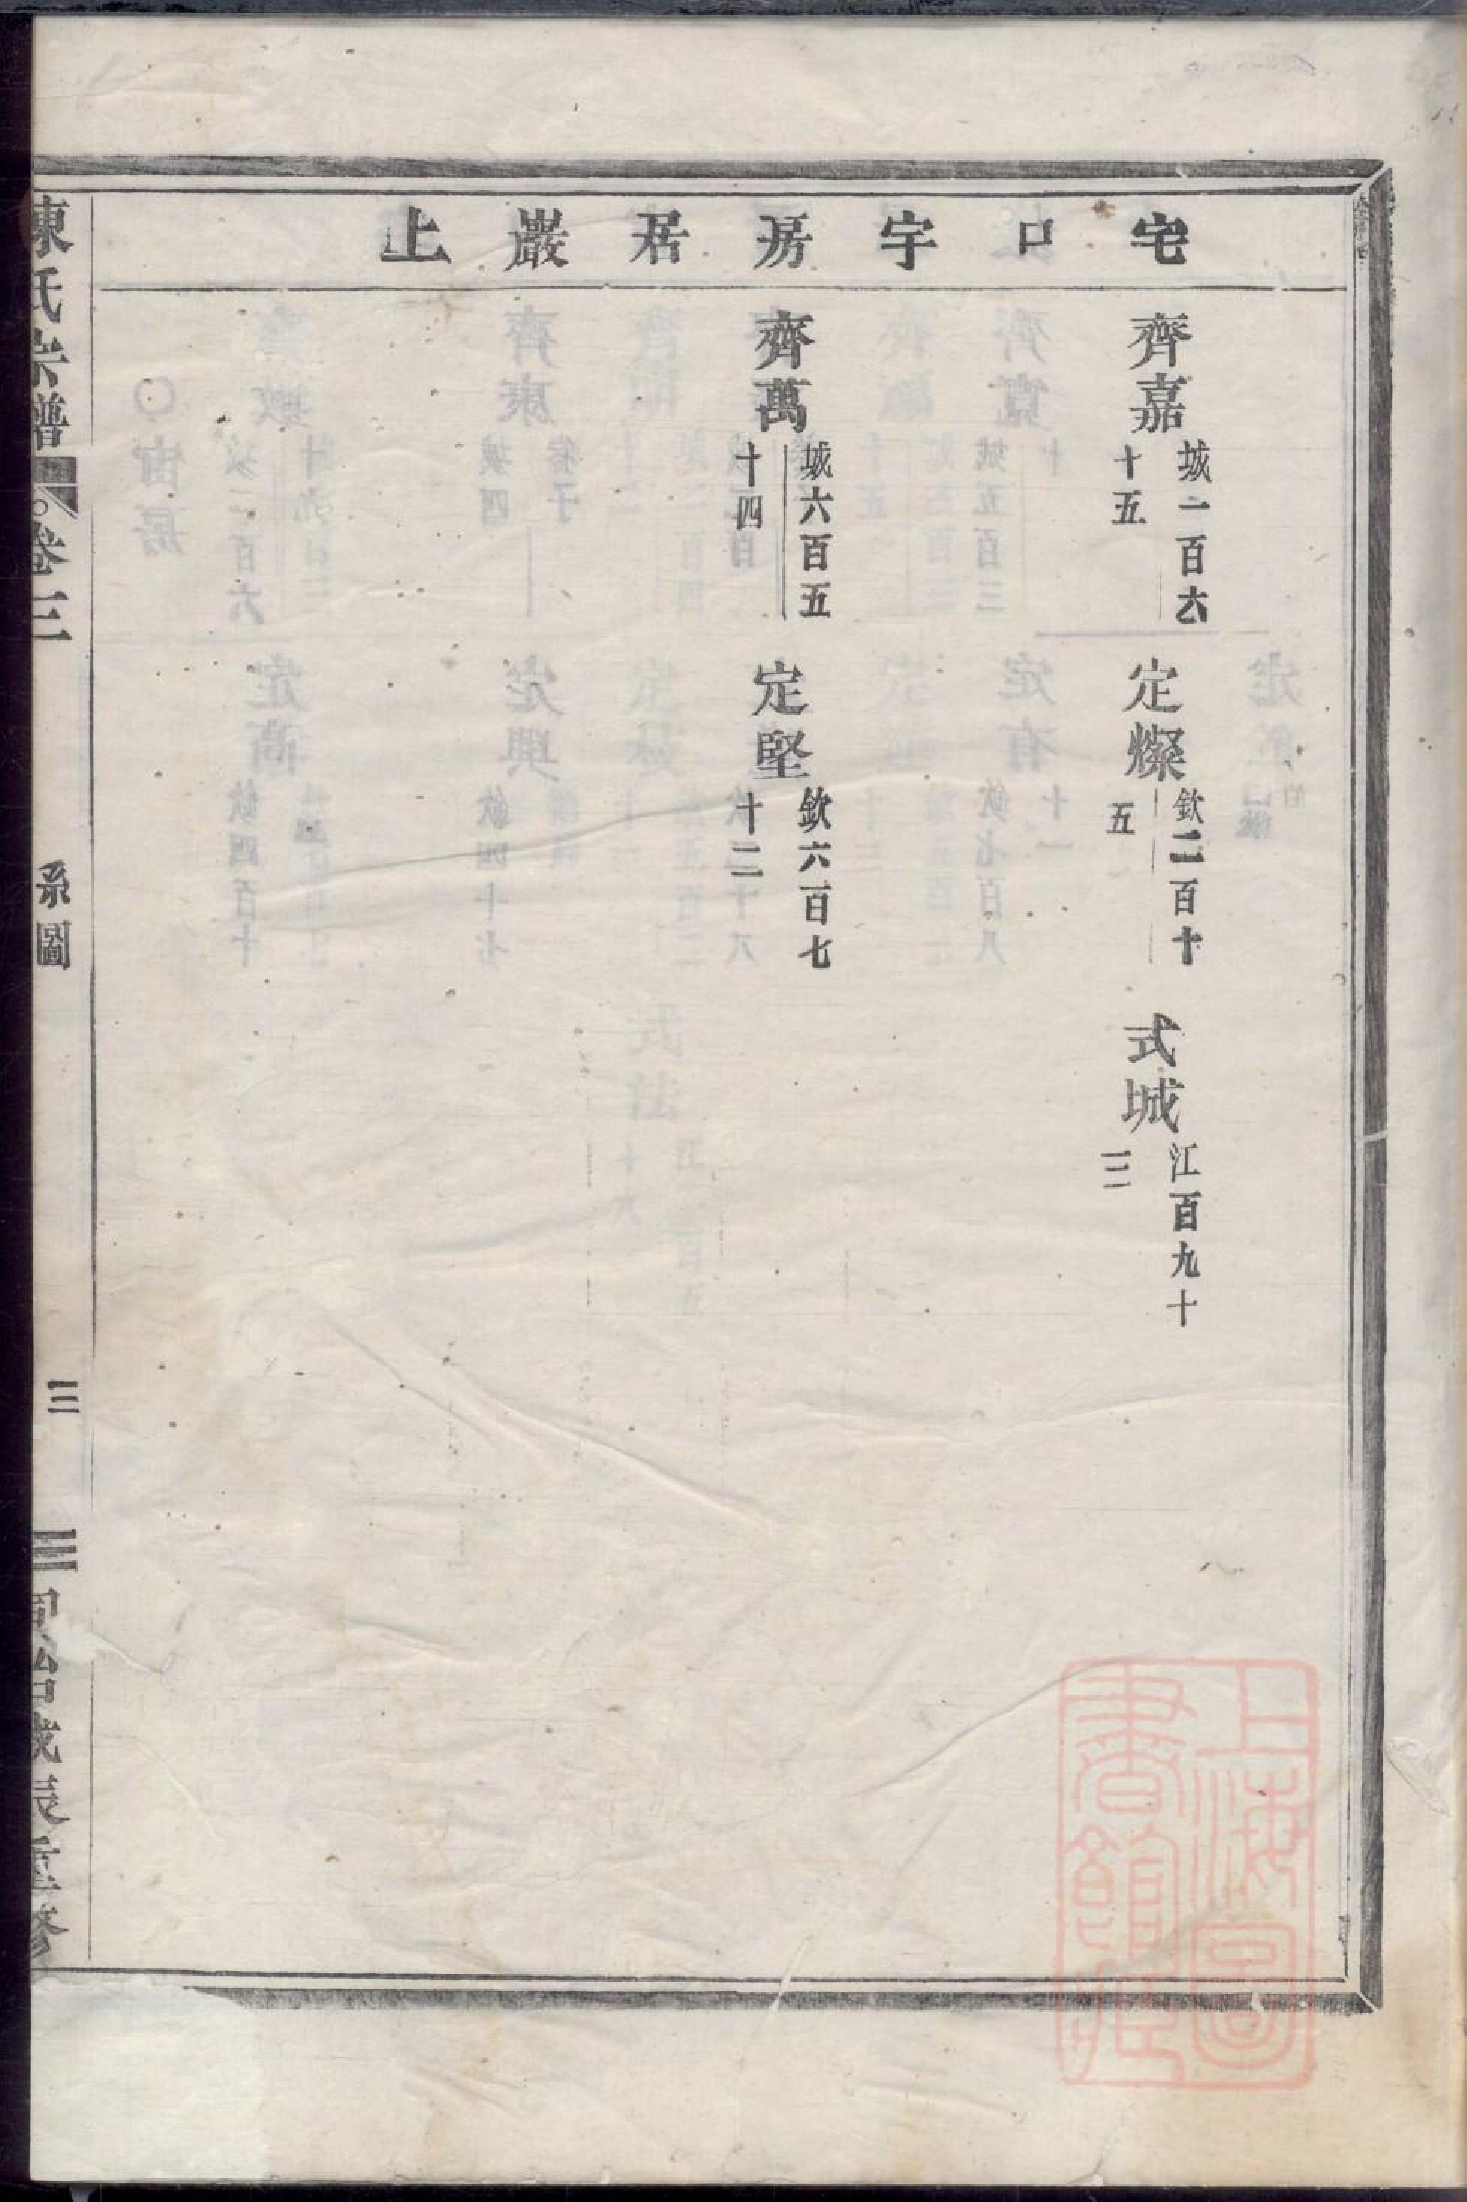 宅口宇房居巖上
齊嘉
城一百六
十五
定燦
欽二百十
五
式城
江百九十
三
齊萬
城六百五
十四
定堅
欽六百七
十二
陳氏宗譜
卷三
系圖
三
同治戊辰重修
上海圖
書館藏